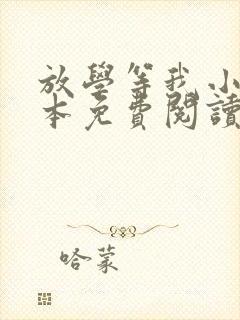 放學等我 小
本免費閱讀
哈蒙